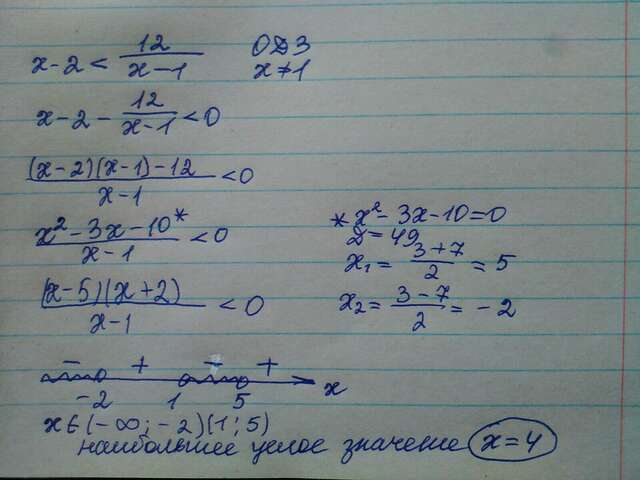 x-2 < 12/(x-1) ОДЗ
x≠1
x-2 - 12/(x-1) < 0
((x-2)(x-1)-12)/(x-1) < 0
(x²-3x-10*)/(x-1) < 0
* x²-3x-10=0
D=49
x₁ = (3+7)/2 = 5
(x-5)(x+2)/(x-1) < 0
x₂ = (3-7)/2 = -2
- + - +
-2 1 5 x
x∈(-∞;-2)(1;5)
наибольшее целое значение x=4